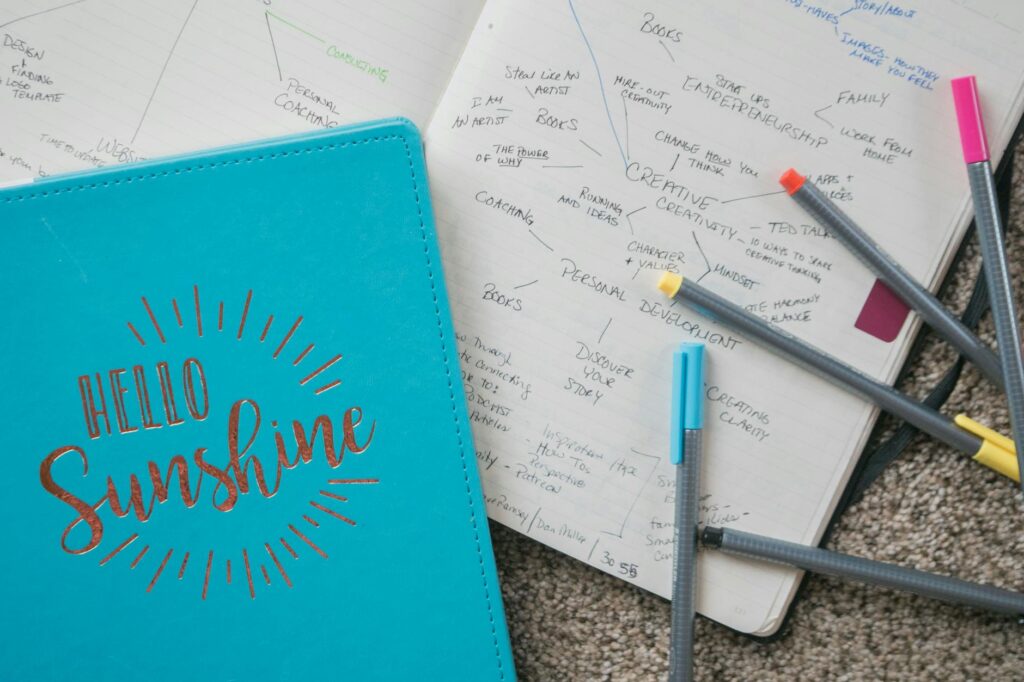 HELLO
Sunshine
DESIGN
+
FINDING
LOGO
TEMPLATE
CONSULTING
PERSONAL
COACHING
WEBSITE
STORY/ABOUT
IMAGES - HOW THEY
MAKE YOU FEEL
BOOKS
Steal Like AN
ARTIST
I AM
AN ARTIST
BOOKS
HIRE-OUT
CREATIVITY
START UPS
ENTREPRENEURSHIP
FAMILY
WORK FROM
HOME
THE POWER
OF WHY
CHANGE HOW YOU
THINK
CREATIVE
CREATIVITY
APPS +
RUNNING
AND IDEAS
TED TALKS
10 WAYS TO SPARK
CREATIVE THINKING
COACHING
CHARACTER
+ VALUES
MINDSET
HARMONY
BALANCE
PERSONAL DEVELOPMENT
BOOKS
DISCOVER
YOUR
STORY
CREATING
CLARITY
Through
Connecting
TO:
PODCAST
Articles
Inspiration
- How Tos
Perspective
- Patreon
Ramsey/Dan Miller/
30
55